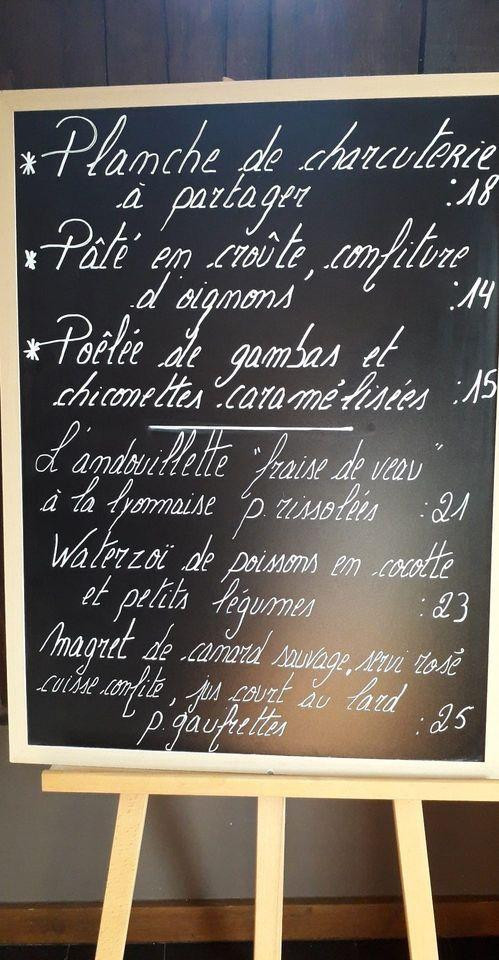 * Planche de charcuterie
à partager :18
* Pâté en croûte, confiture
d'oignons :14
* Poêlée de gambas et
chiconettes caramélisées :15
L'andouillette "fraise de veau"
à la lyonnaise p. rissolées :21
Waterzoï de poissons en cocotte
et petits légumes :23
Magret de canard sauvage, servi rosé
cuisse confite, jus court au lard
p. gaufrettes :25